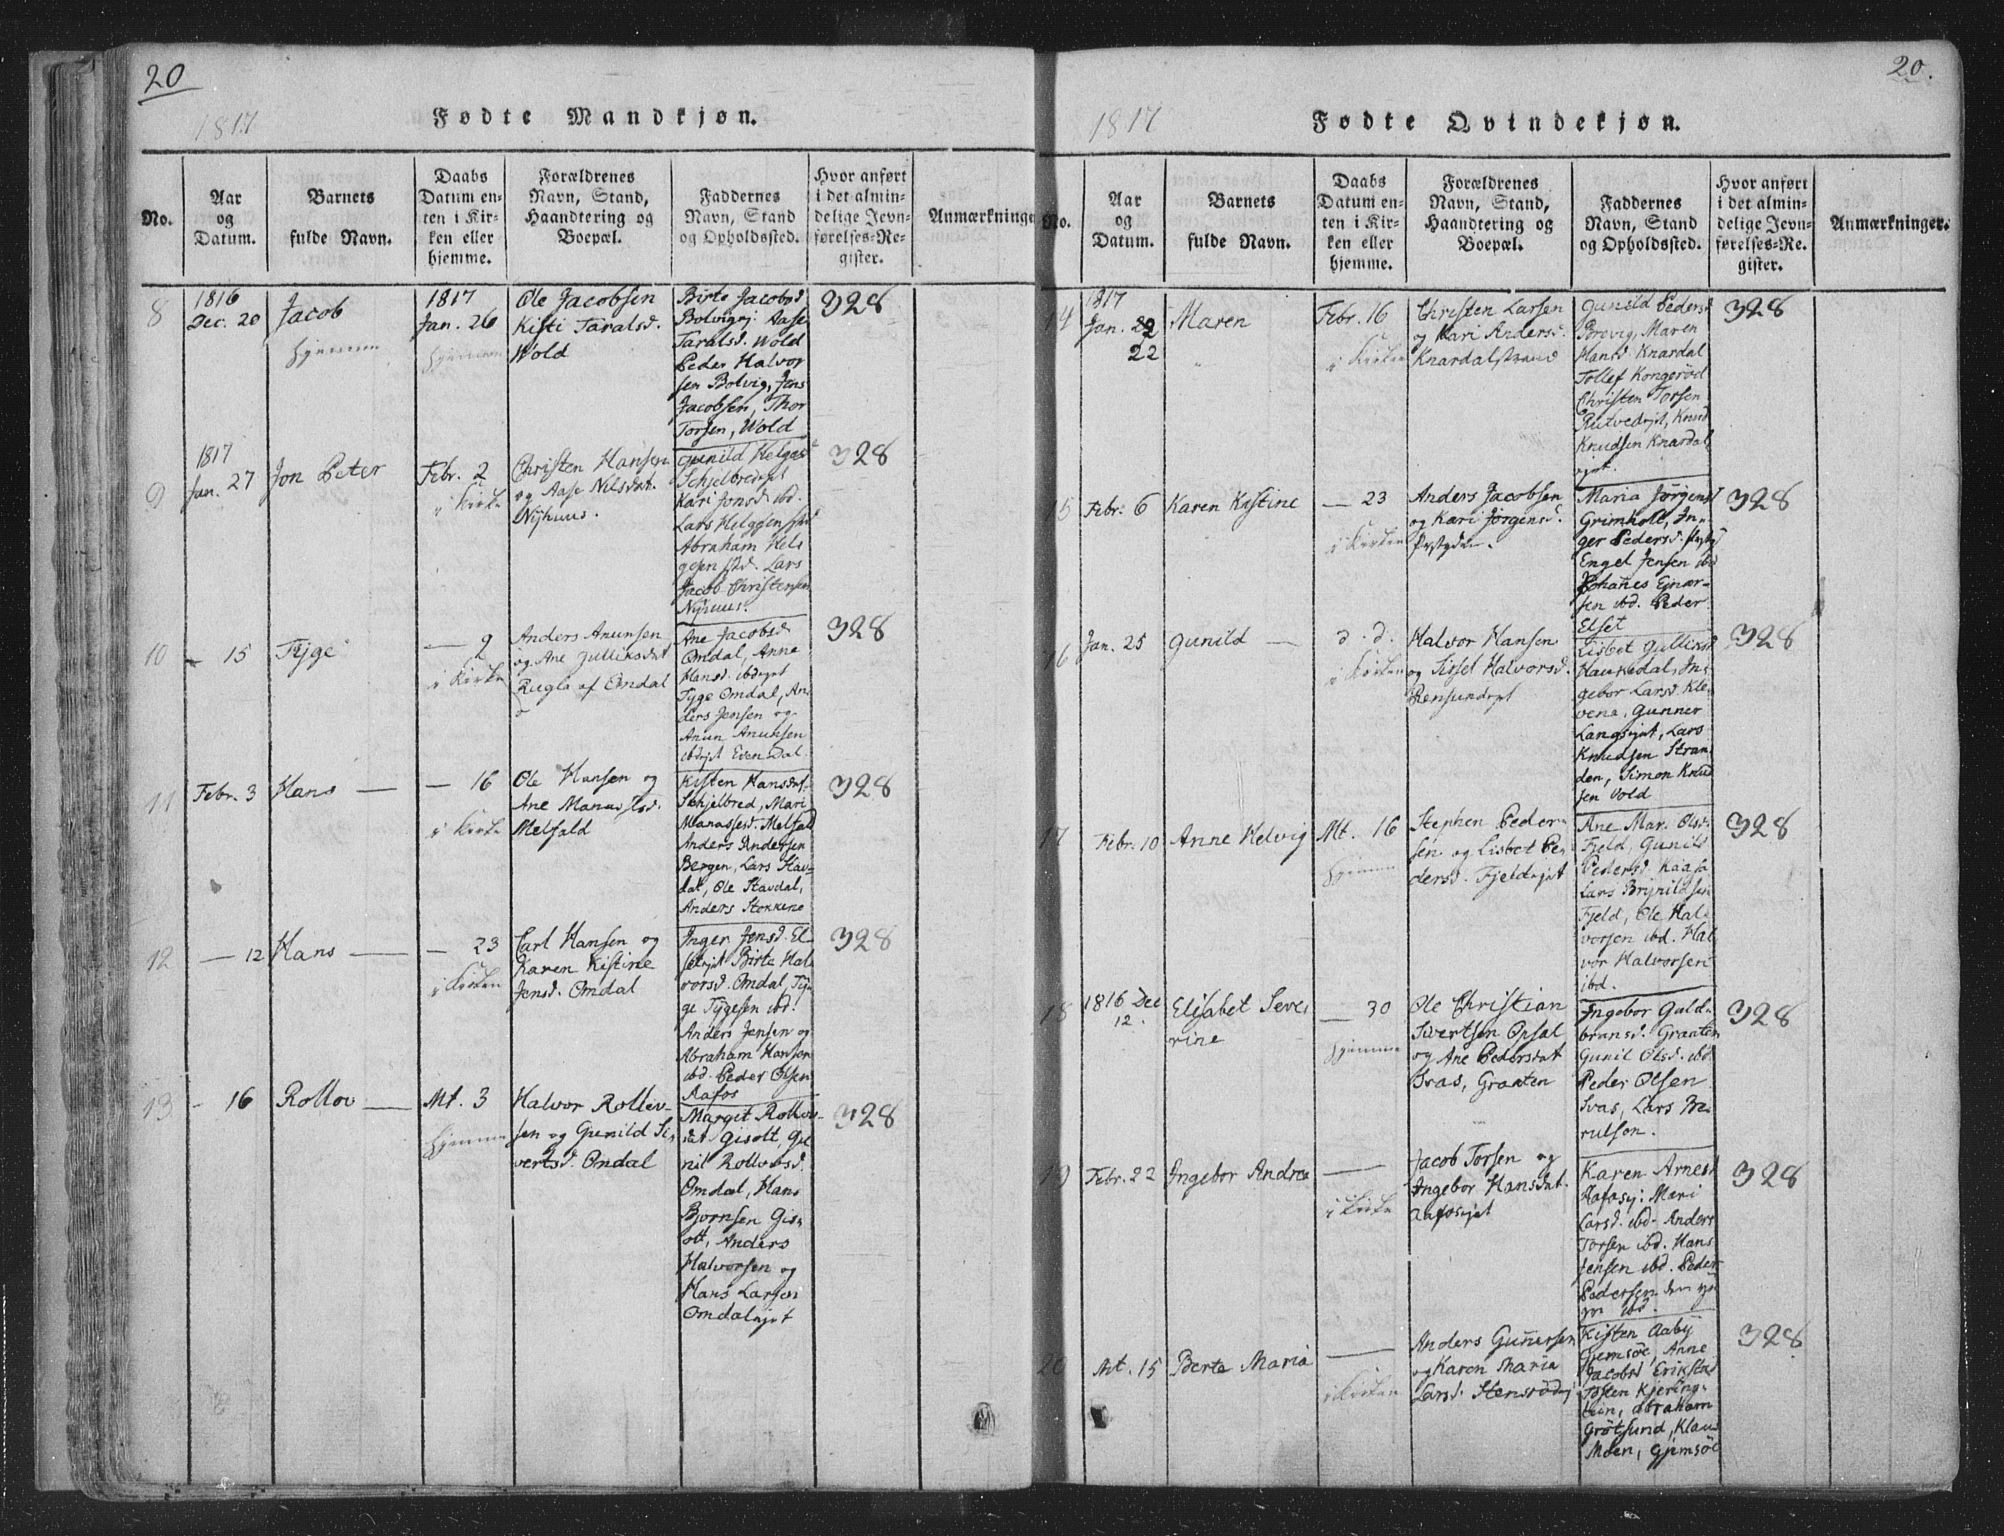 20
1817
Fødte Mandkjøn.
No.
Aar
og
Datum.
Barnets
fulde Navn.
Daabs
Datum en-
ten i Kir-
ken eller
hjemme.
Forældrenes
Navn, Stand,
Haandtering og
Boepæl.
Faddernes
Navn, Stand
og Opholdssted.
Hvor anført
i det almin-
delige Jevn-
førelses-Re-
gister.
Anmærkninge
8
1816
Dec. 20
Jacob
hjemme
1817
Jan. 26
hjemme
Ole Jacobsen
Kisti Taralsd.
Wold
Birte Jacobsd
Bolvigej Aase
Taralsd. Wold
Peder Halvor
sen Bolvig, Jens
Jacobsen, Thor
Torsen, Wold
328
9
1817
Jan. 27
Jon Peter
Febr. 2
i Kirke
Christen Hansen
og Aase Nilsdat.
Nyhuus.
Gunild Helgasd
Schjelbredejet
Kari Jonsd. ibd.
Lars Helgesen
Abraham Hel
gesen ibd. Lars
Jacob Christensen
Nyhuus.
328
10
- 15
Tyge
— 2
i Kirke
Anders Anunsen
og Ane Gulliksdat
Rugla af Omdal
Ane Jacobsd
Omdal, Anne
Hansd. ibdejet
Tyge Omdal, An
ders Jensen og
Anun Anunsen
ibdejet Even Dal
328
11
Febr. 3
Hans —
— 16
i Kirke
Ole Hansen og
Ane Manassesd.
Melfald
Kisten Hansdat.
Schjelbred, Mari
Manassesd. Melfald
Anders Andersen
Bergen, Lars Stav
dal, Ole Stavdal,
Anders Stokkene
328
12
— 12
Hans —
— 23
i Kirken
Carl Hansen og
Karen Kistine
Jensd. Omdal
Inger Jensd. El-
setejet Birte Hal
vorsd. Omdal, Ty
ge Tygesen ibd.
Anders Jensen og
Abraham Hansen
ibd. Peder Olsen
Aafos
328
13
- 16
Rollov —
Mt. 3
hjemme
Halvor Rollev-
sen og Gunild Si-
vertsd. Omdal
Margit Rollevs-
dat Gisolt, Gu
nil Rollvsd.
Omdal, Hans
Bjornsen Gis-
olt, Anders
Halvorsen og
Hans Larsen
Omdalejet
328
20.
1817
Fødte Qvindekjøn.
No.
Aar
og
Datum.
Barnets
fulde Navn.
Daabs
Datum en-
ten i Kir-
ken eller
hjemme.
Forældrenes
Navn, Stand,
Haandtering og
Boepæl.
Faddernes
Navn, Stand
og Opholdssted.
Hvor anført
i det almin-
delige Jevn-
førelses-Re-
gister.
Anmærkninger.
14
1817
Jan. 22
22
Maren
Febr. 16
i Kirken
Christen Larsen
og Kari Andersd.
Knardalstrand
Gunild Pedersd
Borvig, Maren
Hansd. Knardal
Tollef Kongerød
Christen Torsen
Rutvedejet, Knud
Knudsen Knardal
ejet.
328
15
Febr. 6
Karen Kistine
— 23
i Kirken
Anders Jacobsen
og Kari Jørgensd.
Maria Jørgensd
Grimholt, In-
ger Pedersd.
Engel Jensen ibd
Johanes Ejnar-
sen ibd. Peder
Elset
328
16
Jan. 25
Gunild —
d. d.
i Kirken
Halvor Hansen
og Sisset Halvorsd.
Rensundejet
Lisbet Gulliksd
Haukedal, In
gebor Larsd. Kle-
vene, Gunner
Langejet, Lars
Knudsen Stran
den, Simon Knud
sen Vold
328
17
Febr. 10
Anne Helvig
Mt. 16
hjemme
Stephen Peder-
sen og Lisbet Pe-
dersd. Fjeldejet
Ane Mar. Olsd.
Fjeld, Gunild
Pedersd. Kaasa
Lars Brynildsen
Fjeld, Ole Hal-
vorsen ibd. Hal
vor Halvorsen
ibd.
328
18
1816 Dec
12.
Elisabet Seve-
rine
— 30
hjemme
Ole Christian
Sivertsen Opsal
og Ane Pedersdat
Bras, Graaten
Ingebor Guld-
bransd. Graaten
Gunil Olsd. ibd.
Peder Olsen
Svas, Lars Be
rulsen.
328
19
Febr. 22
Ingebor Andrea
—
i Kirke
Jacob Torsen og
Ingebor Hansdat.
Aafosejet
Karen Arnesd
Aafosej: Mari
Larsd. ibd. Anders
Torsen ibd. Hans
Jensen ibd. Peder
Pedersen den yn
gre ibd.
328
20
Mt. 15
Berte Maria
—
i Kirken
Anders Gunersen
og Karen Maria
Larsd. Stensrødej
Kisten Aaby
Gjemsøe, Anne
Jacobsd Erikstad
Tosten Kjering-
tein, Abraham
Grøtsund, Klau
Moen, Gjemsøe
328